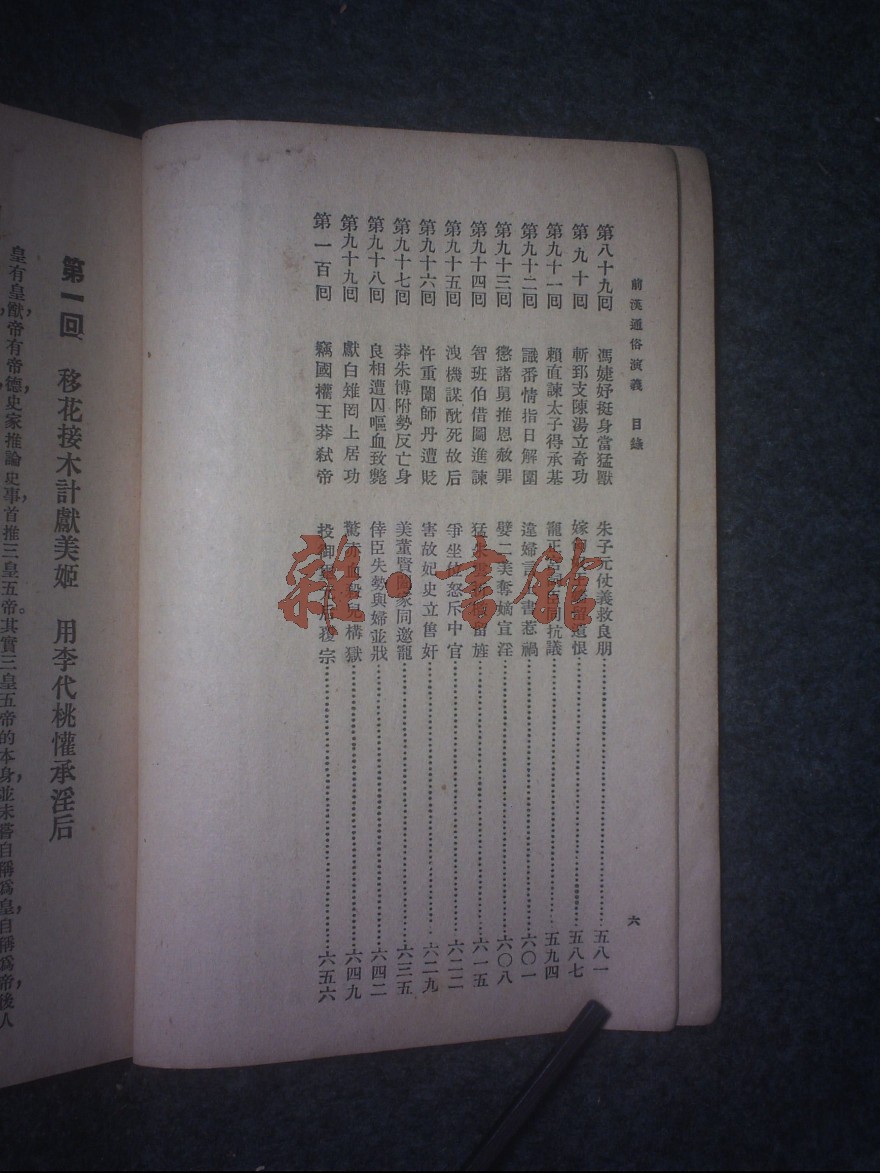 前漢通俗演義 目錄
第八十九回 馮婕妤挺身當猛獸 朱子元仗義救良朋 五八一
第九十回 斬郅支陳湯立奇功 嫁 遺恨 五八七
第九十一回 賴直諫太子得承基 寵正 同抗議 五九四
第九十二回 識番情指日解圍 違婦言 書惹禍 六〇一
第九十三回 懲諸舅推恩赦罪 嬖二美奪嫡宣淫 六〇八
第九十四回 智班伯借圖進諫 猛朱 留旌 六一五
第九十五回 洩機謀酖死故后 爭坐位怒斥中官 六二二
第九十六回 忤重闈師丹遭貶 害故妃史立售奸 六二九
第九十七回 莽朱博附勢反亡身 美董賢 家同邀寵 六三五
第九十八回 良相遭囚嘔血致斃 倖臣失勢與婦並戕 六四二
第九十九回 獻白雉罔上居功 驚赤血 兒構獄 六四九
第一百回 竊國權王莽弒帝 投御 元后覆宗 六五六
六
雜·書館
第一回 移花接木計獻美姬 用李代桃懽承淫后
皇有皇猷，帝有帝德，史家推論史事，首推三皇五帝。其實三皇五帝的本身，並未嘗自稱爲皇，自稱爲帝，後人